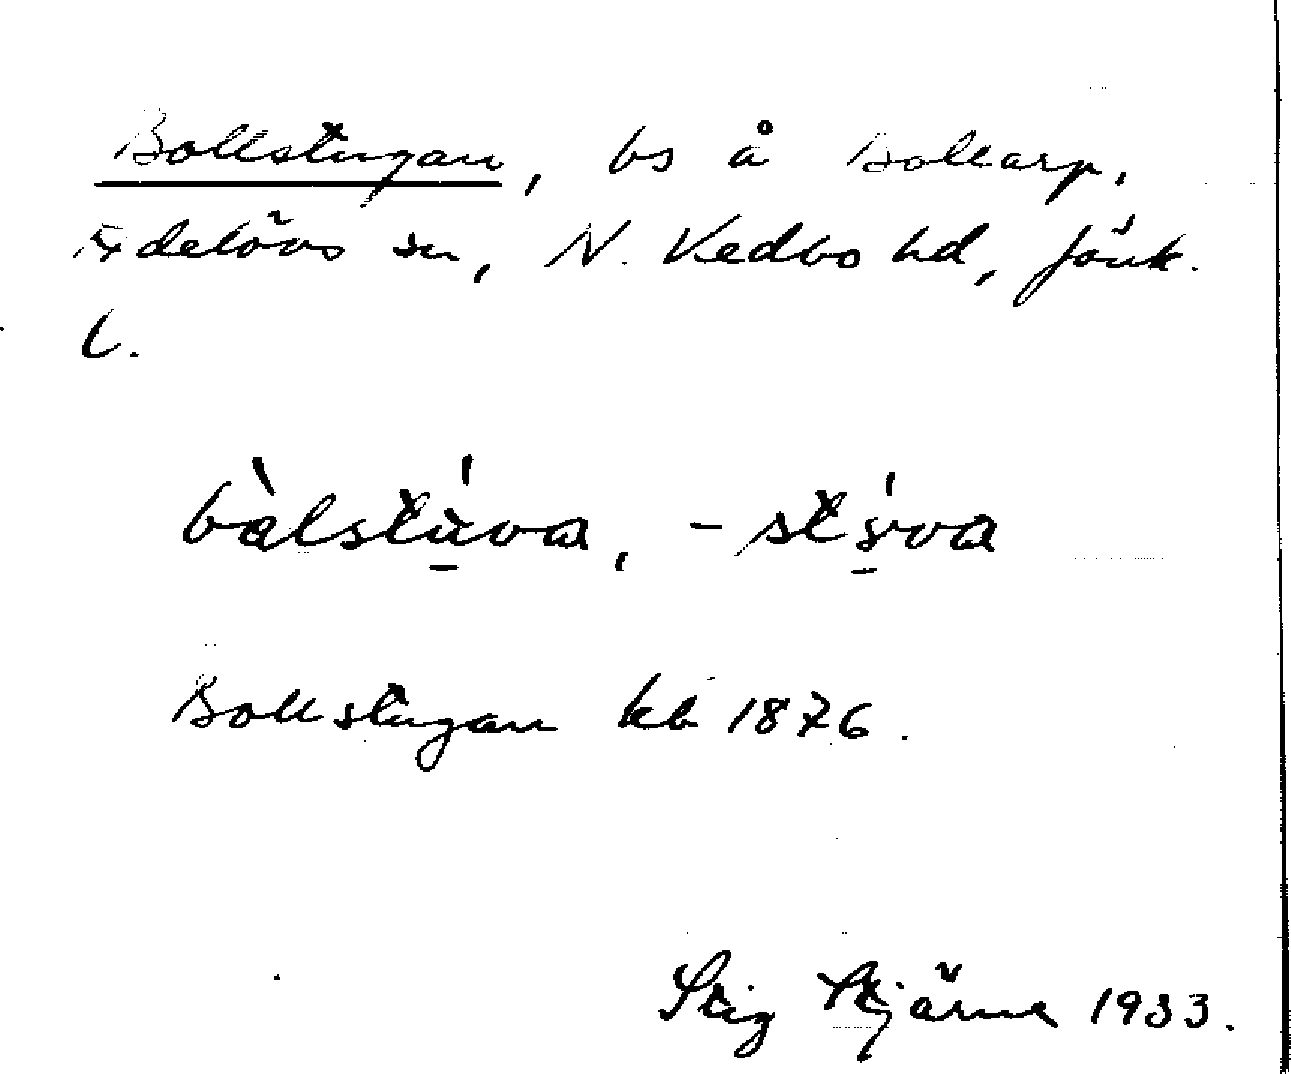 Bollstugan, bs å Bollarp,
Edelövs sn, N. Vedbo hd, Jönk.
l.
bàlstúva, -stýva
Bollstugan kb 1876.
Stig Stjärne 1933.